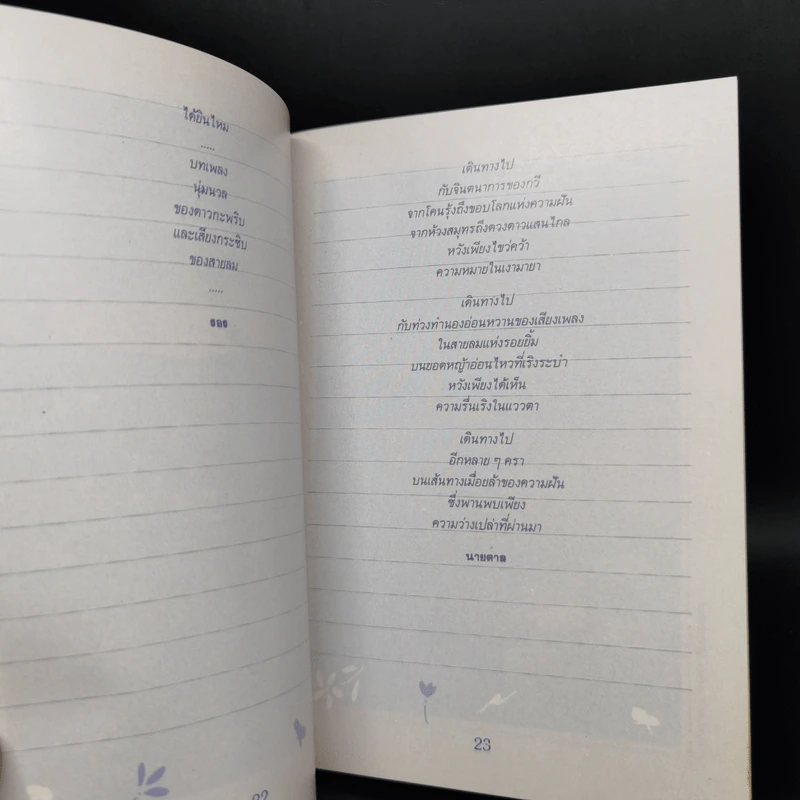 ได้ยินไหม
.....
บทเพลง
นุ่มนวล
ของดาวกะพริบ
และเสียงกระซิบ
ของสายลม
.....
จอจ
22
เดินทางไป
กับจินตนาการของกวี
จากโคนรุ้งถึงขอบโลกแห่งความฝัน
จากห้วงสมุทรถึงดวงดาวแสนไกล
หวังเพียงไขว่คว้า
ความหมายในเงามายา
เดินทางไป
กับท่วงทำนองอ่อนหวานของเสียงเพลง
ในสายลมแห่งรอยยิ้ม
บนยอดหญ้าอ่อนไหวที่เริงระบำ
หวังเพียงได้เห็น
ความรื่นเริงในแววตา
เดินทางไป
อีกหลาย ๆ ครา
บนเส้นทางเมื่อยล้าของความฝัน
ซึ่งพานพบเพียง
ความว่างเปล่าที่ผ่านมา
นายตาล
23